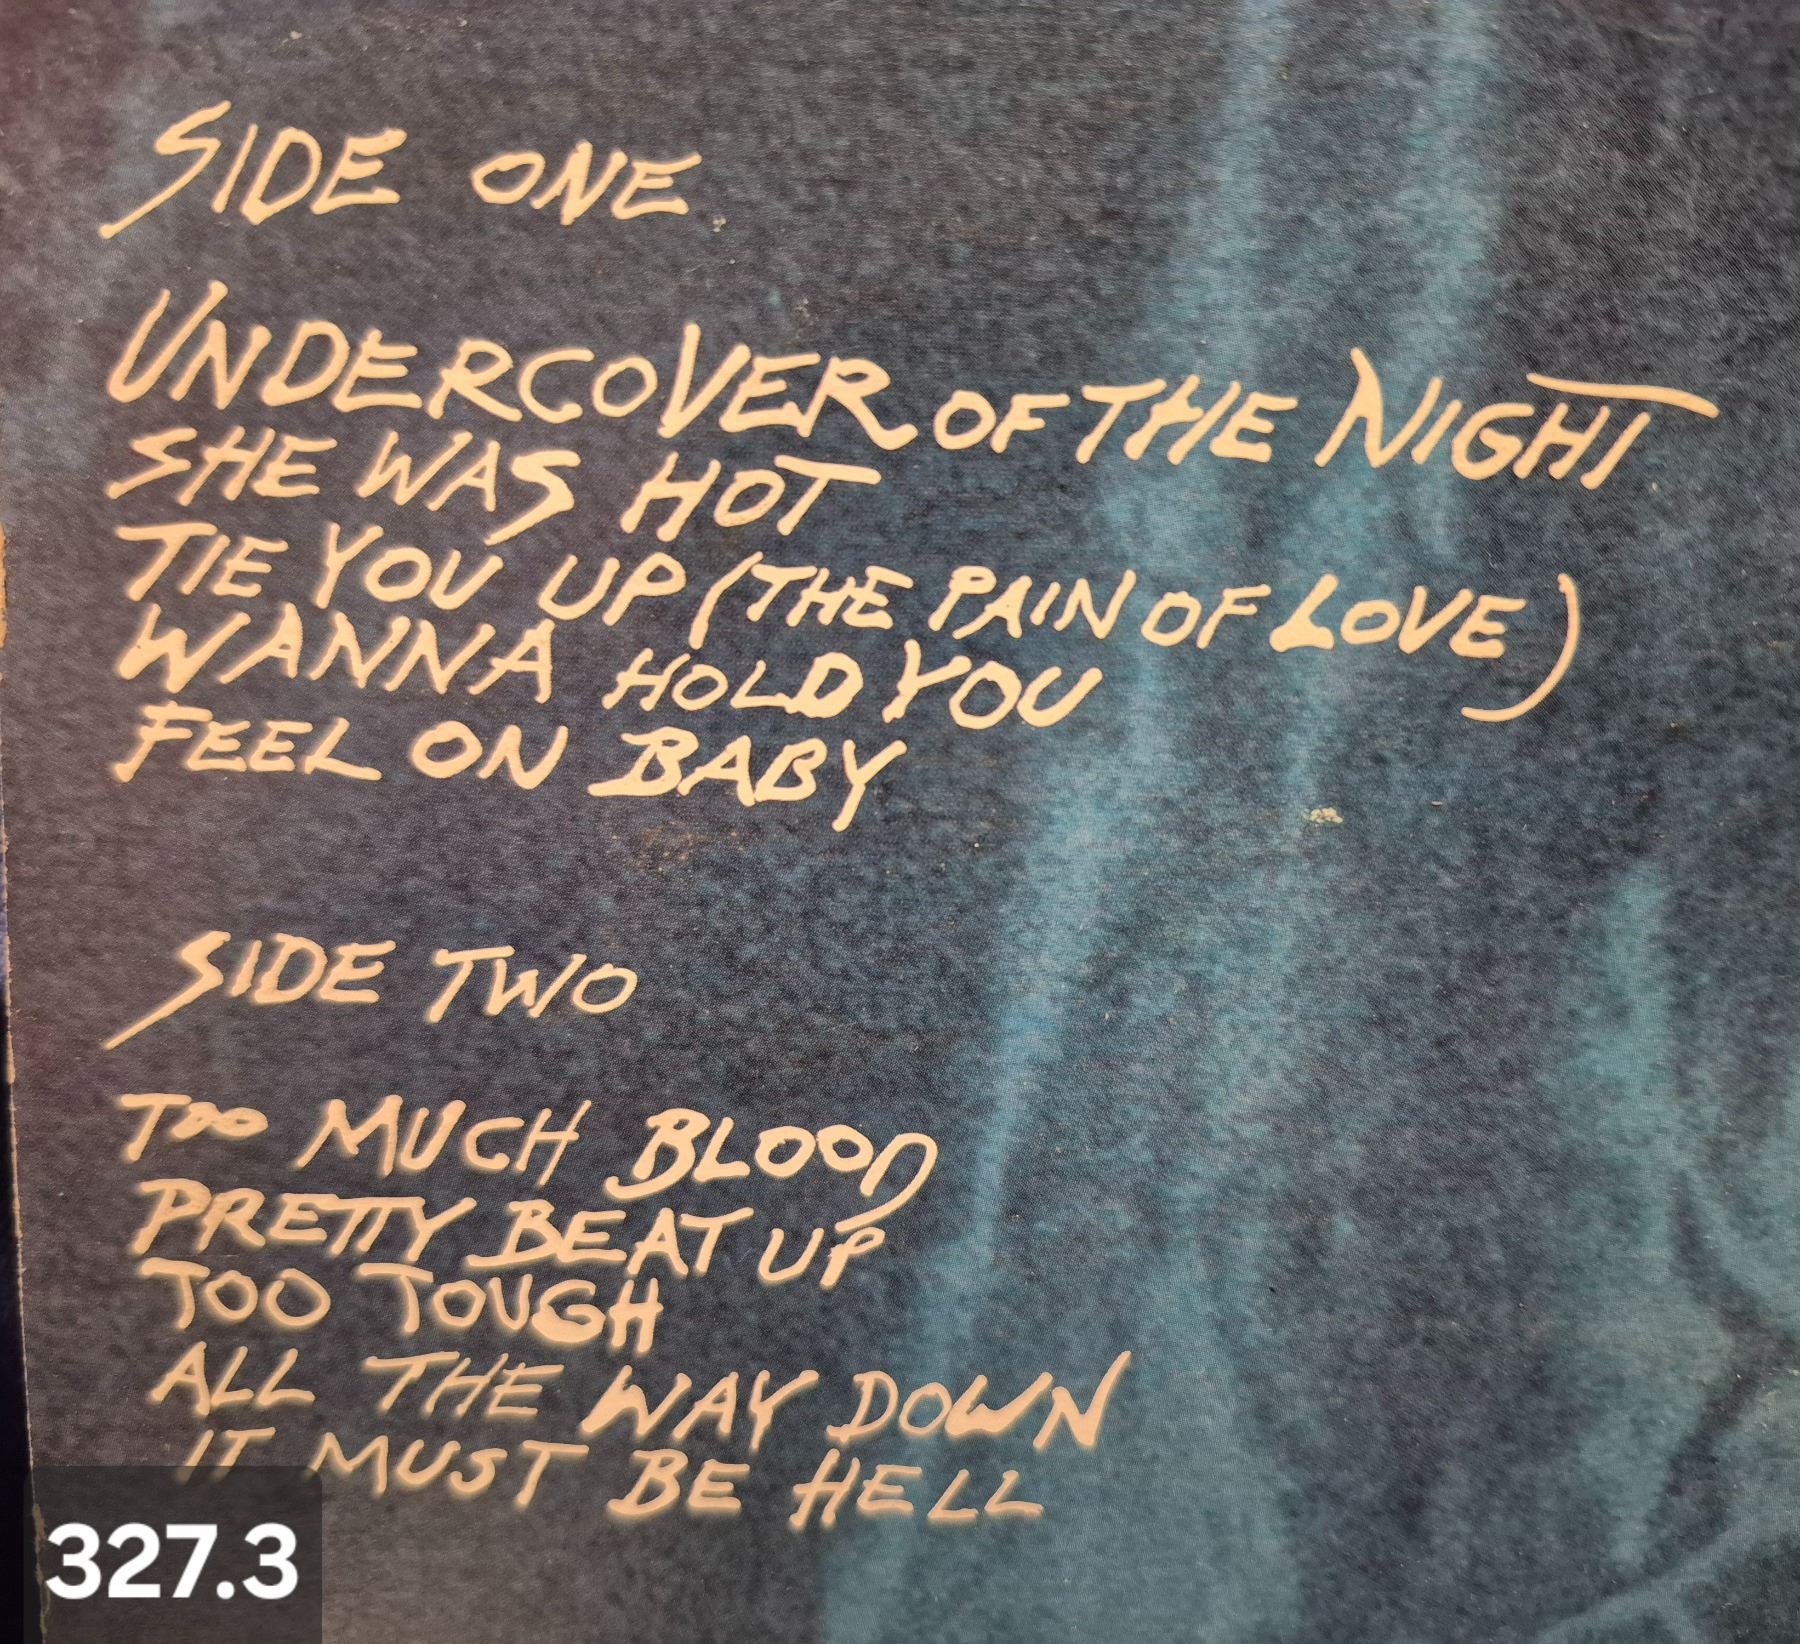 SIDE ONE
UNDERCOVER OF THE NIGHT
SHE WAS HOT
TIE YOU UP (THE PAIN OF LOVE)
WANNA HOLD YOU
FEEL ON BABY
SIDE TWO
TOO MUCH BLOOD
PRETTY BEAT UP
TOO TOUGH
ALL THE WAY DOWN
IT MUST BE HELL
327.3